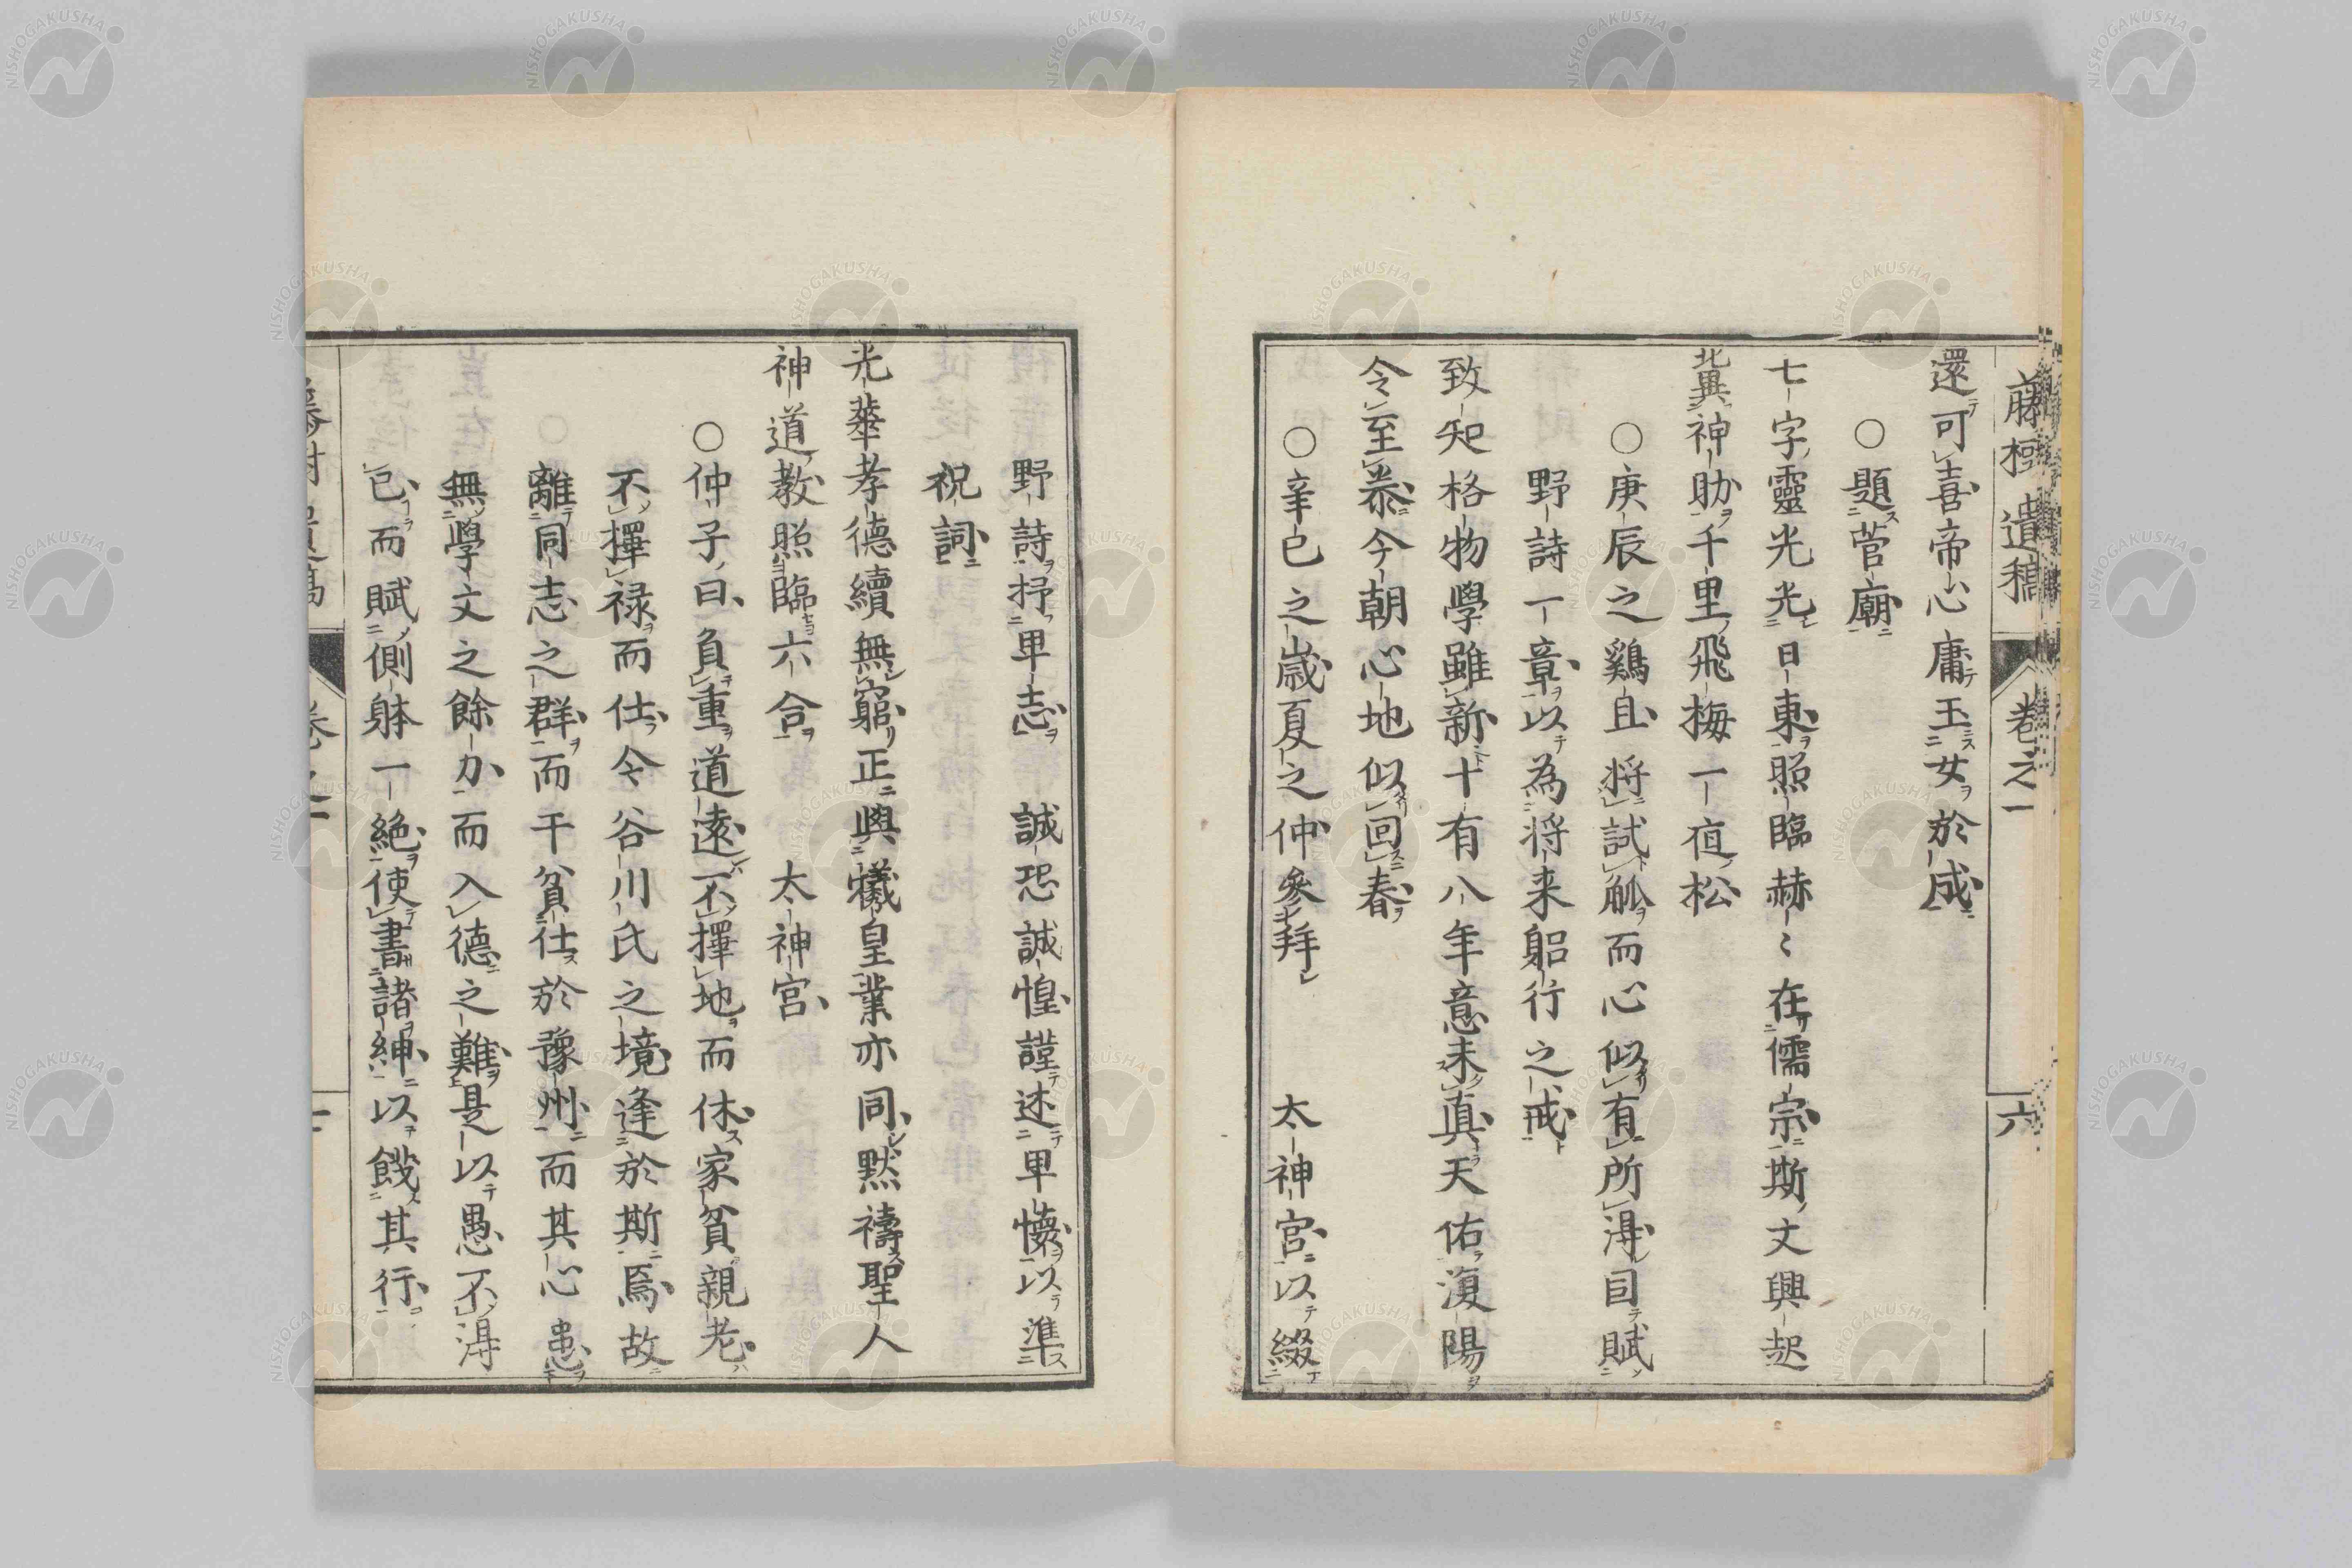 藤樹遺稿 卷之一 六
還可喜帝心庸玉女於成
○題菅廟
七字靈光光日東照臨赫〻在儒宗斯文興起
冀神助千里飛梅一夜松
○庚辰之鷄且將試觚而心似有所得因賦
野詩一章以為將来躬行之戒
致知格物學雖新十有八年意未真天佑復陽
令至泰今朝心地似回春
○辛巳之歲夏之仲參拜 太神宮以綴
野詩抒卑志 誠恐誠惶謹述卑懷以準
祝詞
光華孝德續無窮正與犧皇業亦同黙禱聖人
神道教照臨六合 太神宮
○仲子曰負重道遠不擇地而休家貧親老
不擇禄而仕今谷川氏之境逢於斯焉故
離同志之群而干貧仕於豫州而其心患
無學文之餘力而入德之難是以愚不得
已而賦側躰一絶使書諸紳以餞其行